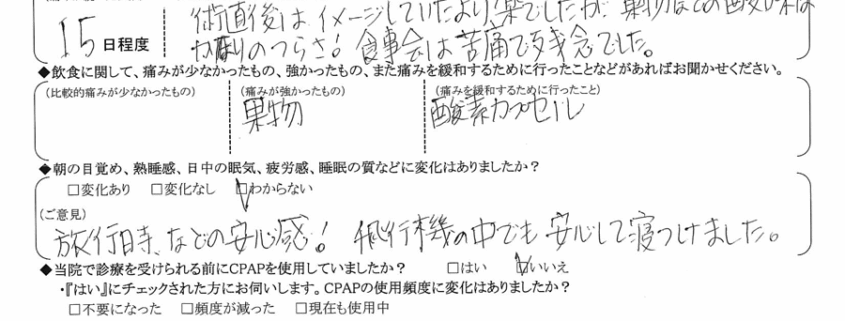 術直後はイメージしていたより楽でしたが、果物などの酸味は
15日程度 かなりのつらさ！食事会は苦痛で残念でした。
◆飲食に関して、痛みが少なかったもの、強かったもの、また痛みを緩和するために行ったことなどがあればお聞かせください。
（比較的痛みが少なかったもの） （痛みが強かったもの） （痛みを緩和するために行ったこと）
果物 酸素カプセル
◆朝の目覚め、熟睡感、日中の眠気、疲労感、睡眠の質などに変化はありましたか？
□変化あり □変化なし ☑わからない
（ご意見）
旅行時などの安心感！飛行機の中でも安心して寝つけました。
◆当院で診療を受けられる前にCPAPを使用していましたか？ □はい ☑いいえ
・『はい』にチェックされた方にお伺いします。CPAPの使用頻度に変化はありましたか？
□不要になった □頻度が減った □現在も使用中